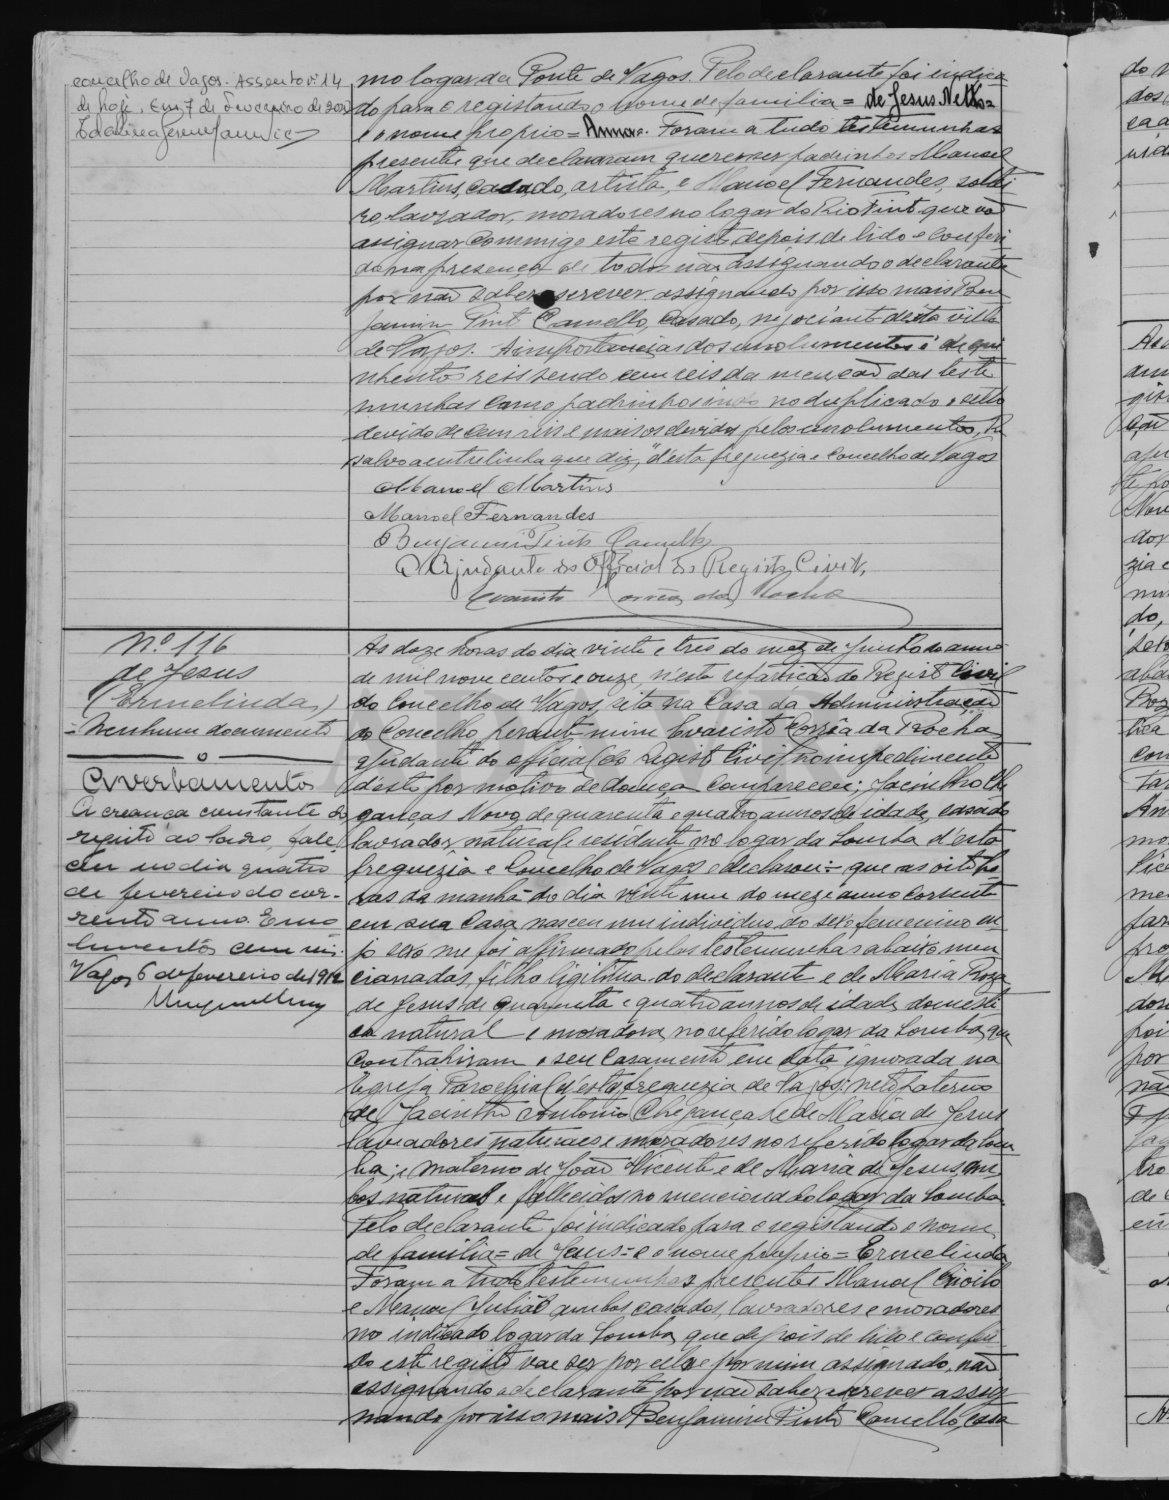 concelho de Vagos. Assento nº 14
de hoje. Em 7 de Fevereiro de
mo logar da Ponte de Vagos. Pelo declarante foi indica
do para o registando o nome de familia = de Jesus Netto =
e o nome proprio = Anna =. Foram a tudo testemunhas
presente que declararam querer ser padrinhos Manoel
Martins, casado, artista, e Manoel Fernandes, soltei
ro, lavrador, moradores no logar do Rio Tint que vão
assignar commigo este registo depois de lido e conferi
do na presença de todos não assignando o declarante
por não saber escrever assignando por isso mais Ben
jamin Pint Camello, casado, negociante d'esta villa
de Vagos. A importancia dos emolumentos é de qui
nhentos reis sendo cem reis da menção das teste
munhas como padrinhos indo no duplicado o sello
devido de cem reis e mais os devidos pelos emolumentos. Re
salvo a entrelinha que diz, "d'esta freguezia e concelho de Vagos
Manoel Martins
Manoel Fernandes
Benjamin Pinto Camello
O Ajudante do Official do Registo Civil,
Evaristo Corrêa da Rocha
Nº 116
de Jesus
(Ermelinda)
= Nenhum documento
Averbamentos
A creança constante do
registo ao lado, fale
ceu no dia quatro
de fevereiro do cor-
rente anno. Emo
lumentos cem reis.
Vagos 6 de fevereiro de 1912
As doze horas do dia vinte e tres do mez de Junho do anno
de mil nove centos e onze, n'esta repartição do Registo Civil
do Concelho de Vagos, sita na Casa da Administração
do Concelho, perante mim Evaristo Corrêa da Rocha
ajudante do oficial do registo Civil no impedimento
d'este por motivo de doença compareceu: Jacintho Che
ganças Novo, de quarenta e quatro annos de idade, casado
lavrador, natural e residente no logar da Lomba d'esta
freguezia e Concelho de Vagos e declarou: - que as oito ho
ras da manhã do dia vinte um do mez e anno corrente
em sua casa nasceu um individuo do sexo femenino cu
jo sexo me foi affirmado pelas testemunhas abaixo men
cionadas, filho ligitima do declarante e de Maria Roza
de Jesus de quarenta e quatro annos de idade domesti
ca natural e moradora no referido logar da Lomba, que
contrahiram o seu casamento em data ignorada na
Egreja Parochial d'esta freguezia de Vagos: neto paterno
de Jacintho Antonio Cheganças e de Maria de Jesus
lavradores naturaes e moradores no referido logar da Lom
ba; e materno de João Vicente e de Maria de Jesus, am
bos naturaes e fallecidos no mencionado logar da Lomba.
Pelo declarante foi indicado para o registando o nome
de familia = de Jesus = e o nome proprio = Ermelinda
Foram a tudo testemunhas presentes Manoel
e Manoel Julião ambos casados, lavradores e moradores
no indicado logar da Lomba, que depois de lido e conferi
do este registo vae ser por elles e por mim assignado, não
assignando o declarante por não saber escrever assig
nando por isso mais Benjamim Pinto Camello, casa